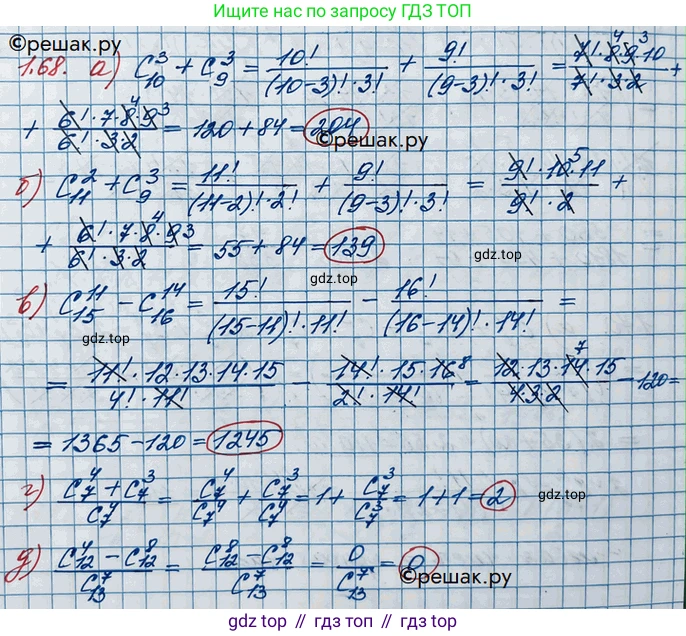 Ищите нас по запросу ГДЗ ТОП
©решак.ру ©решак.ру
1.68. а) C₁₀³ + C₉³ = 10!/((10-3)!·3!) + 9!/((9-3)!·3!) = 7!·8⁴·9³·10/(7!·3·2) +
+ 6!·7·8⁴·9³/(6!·3·2) = 120 + 84 = 204
©решак.ру
б) C₁₁² + C₉³ = 11!/((11-2)!·2!) + 9!/((9-3)!·3!) = 9!·10⁵·11/(9!·2) +
+ 6!·7·8⁴·9³/(6!·3·2) = 55 + 84 = 139
gdz.top
gdz.top
в) C₁₅¹¹ - C₁₆¹⁴ = 15!/((15-11)!·11!) - 16!/((16-14)!·14!) =
gdz.top
= 11!·12·13·14·15/(4!·11!) - 14!·15·16⁸/(2!·14!) = 12·13·14⁷·15/(4·3·2) - 120 =
= 1365 - 120 = 1245
г) (C₇⁴ + C₇³)/C₇⁴ = C₇⁴/C₇⁴ + C₇³/C₇⁴ = 1 + C₇³/C₇³ = 1 + 1 = 2
gdz.top
д) (C₁₂⁴ - C₁₂⁸)/C₁₃⁷ = (C₁₂⁸ - C₁₂⁸)/C₁₃⁷ = 0/C₁₃⁷ = 0
©решак.ру
gdz top // gdz top // gdz top